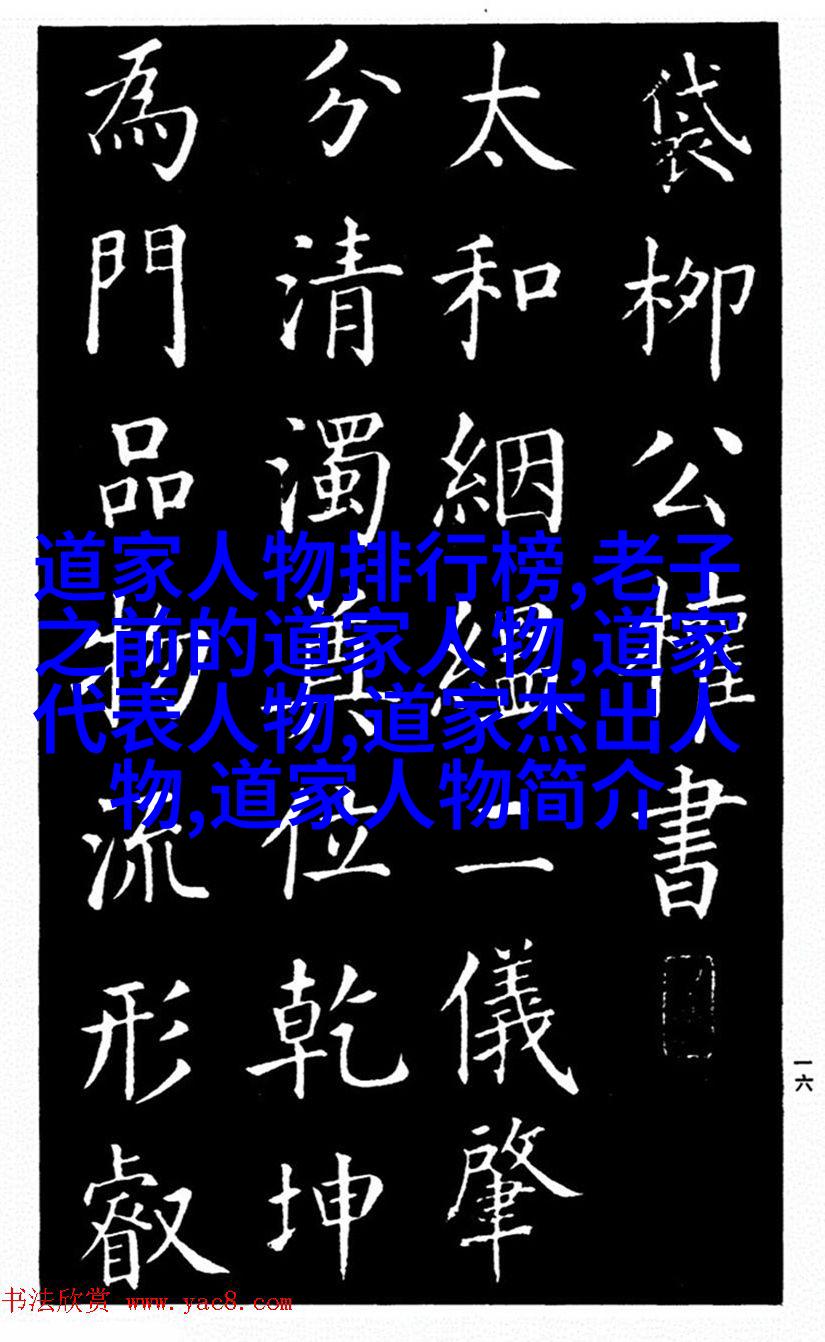 袋柳公權書
太和絪縕二儀肇
分清濁奠位乾坤
為門品物流形叡
道家人物排行榜,老子
之前的道家人物,道家
代表人物,道家杰出人
物,道家人物简介
一六
书法欣赏 www.yac8.com